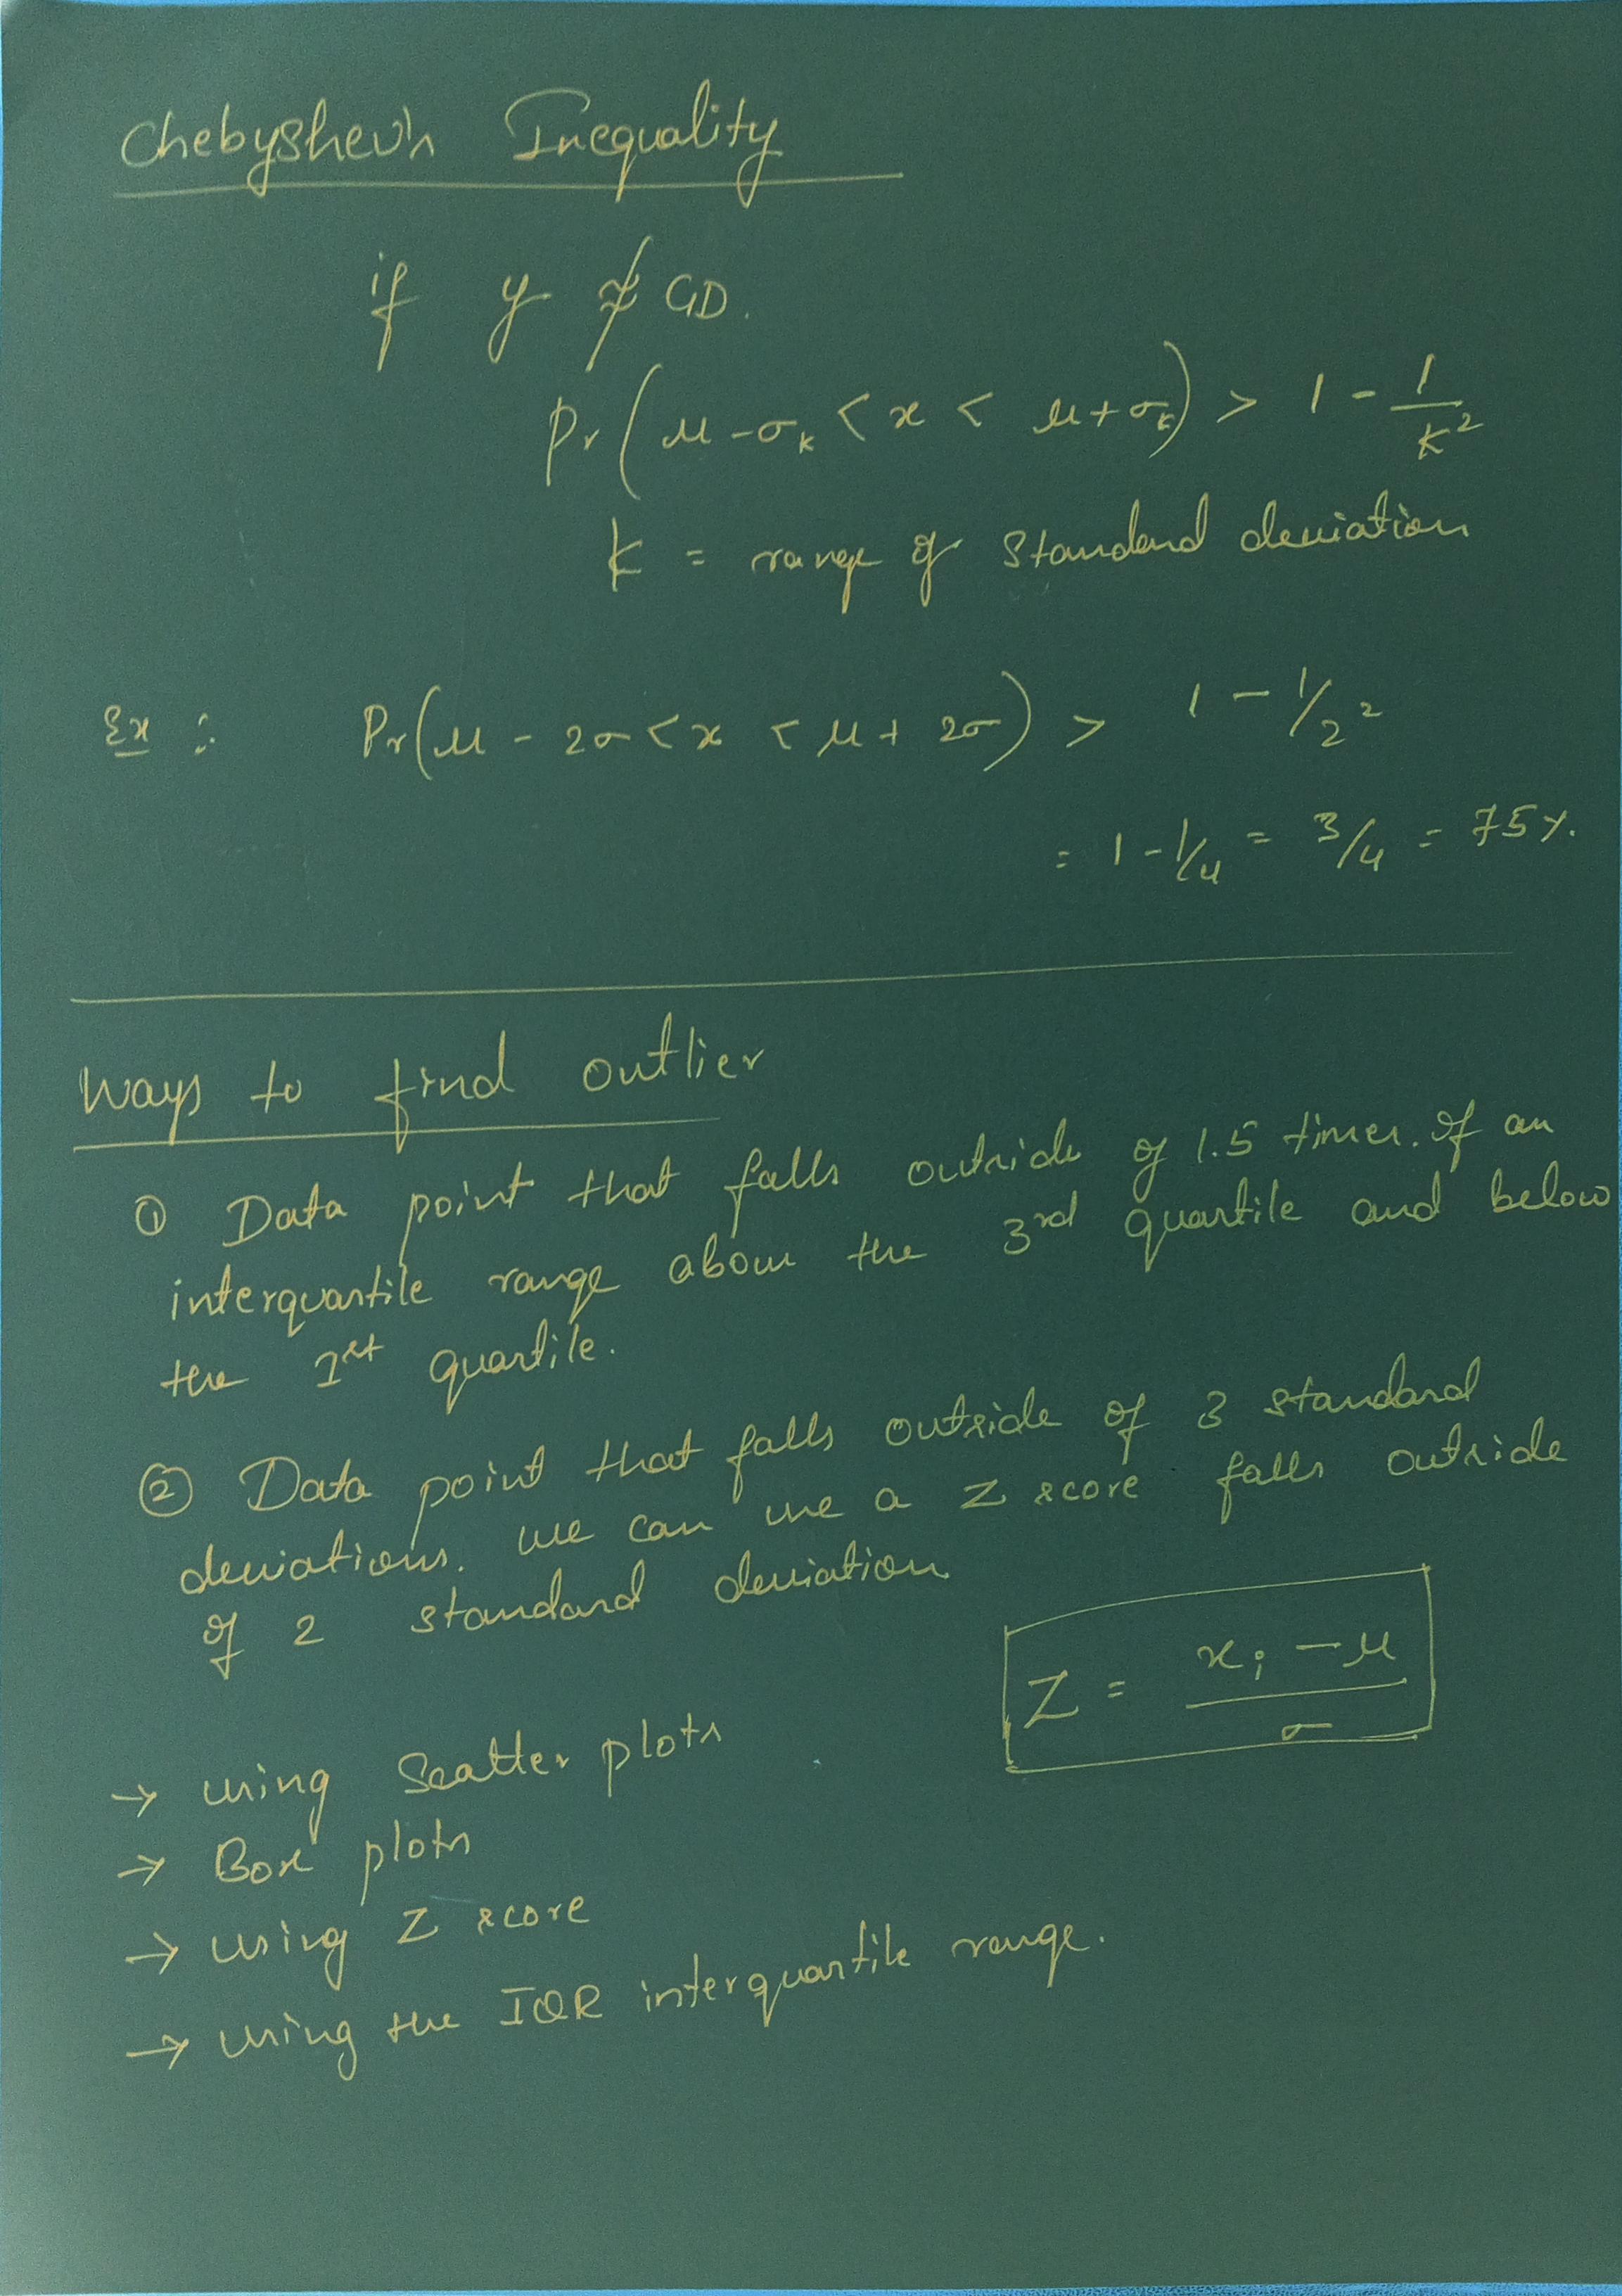 Chebyshev's Inequality
if y ≁ GD.
Pr(μ-σₖ < x < μ+σₖ) > 1 - 1/k²
k = range of Standard deviation
Ex : Pr(μ - 2σ < x < μ + 2σ) > 1 - 1/2²
= 1 - 1/4 = 3/4 = 75%.
Ways to find outlier
① Data point that falls outside of 1.5 times. of an
interquartile range above the 3rd quartile and below
the 1st quartile.
② Data point that falls outside of 3 standard
deviations. we can use a Z score falls outside
of 2 standard deviation
Z = xᵢ - μ / σ
→ using Scatter plots
→ Box plots
→ using Z score
→ using the IQR interquartile range.